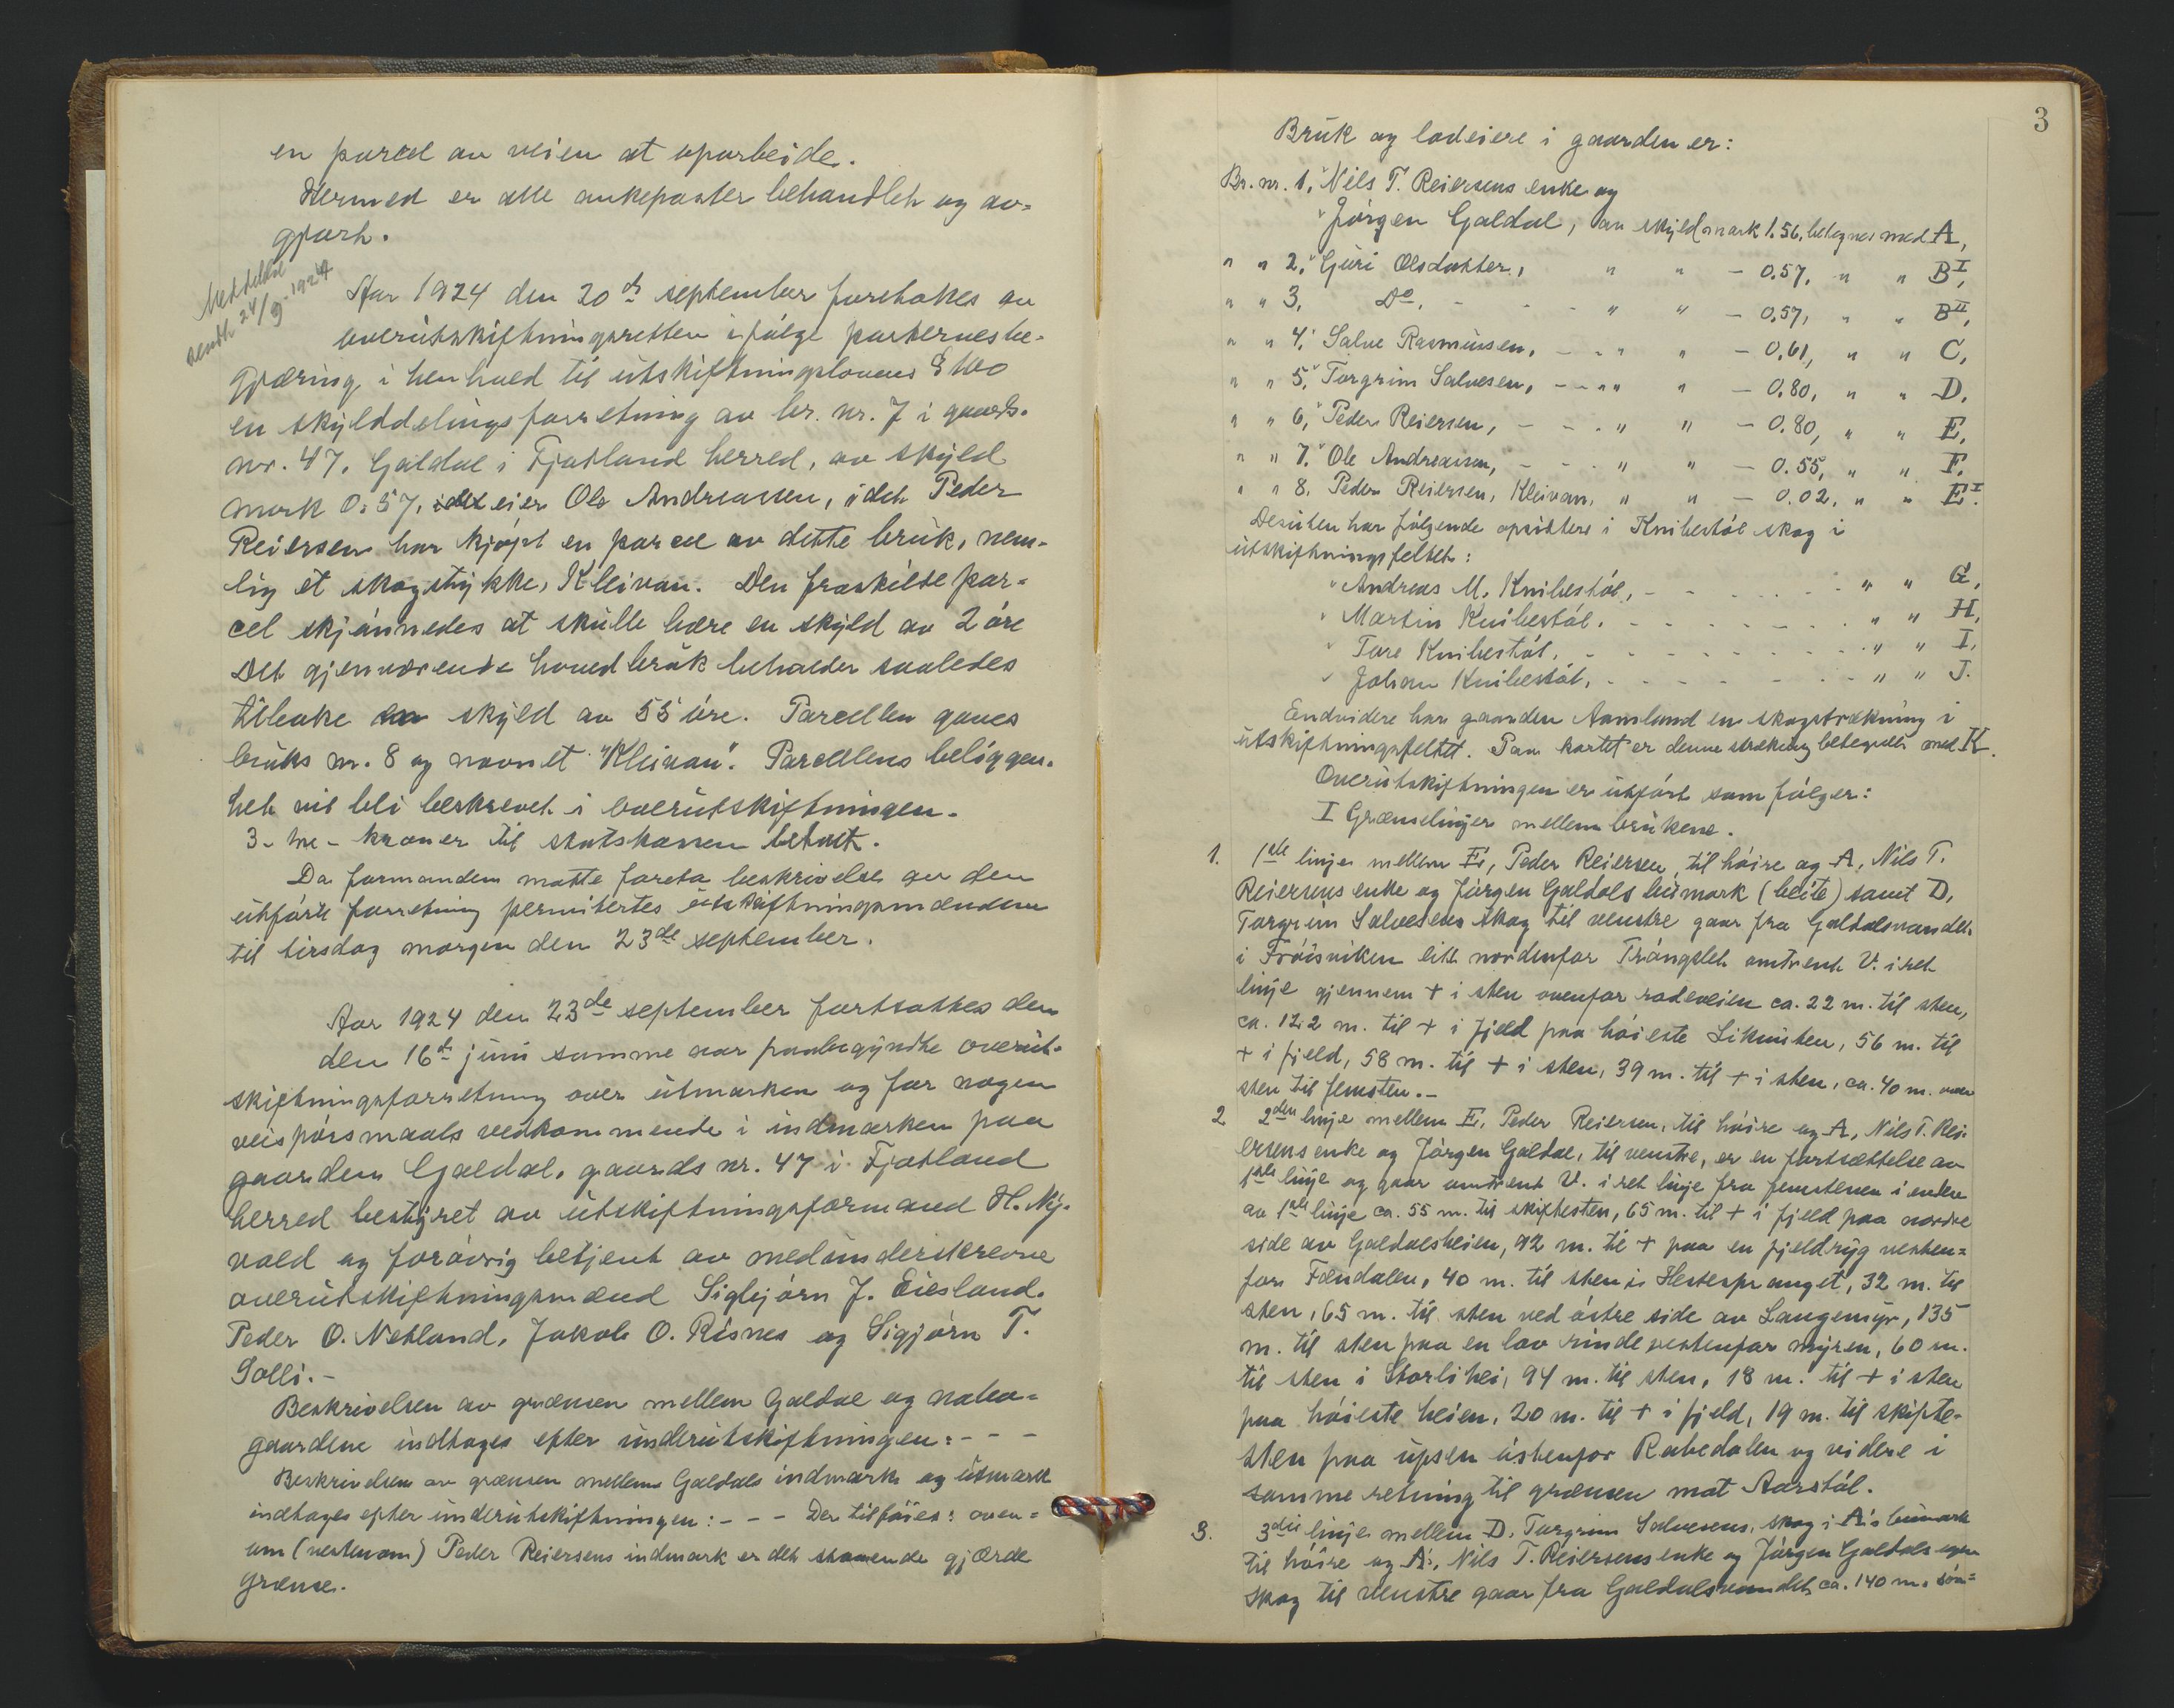 en parcel av veien at oparbeide.
Hermed er alle ankeposter behandlet og av-
gjort.
Meddelelse
sendt 24/9-1924
Aar 1924 den 20de september foretokes av
overutskiftningsretten ifølge parternes be-
gjæring i henhold til utskiftningslovens § 100
en skylddelingsforretning av br. nr. 7 i gaards-
nr. 47, Galdal i Fjotland herred, av skyld
mark 0.57, eier Ole Andreassen, idet Peder
Reiersen har kjøpt en parcel av dette bruk, nem-
lig et skogstykke, Kleivan. Den fraskilte par-
cel skjønnedes at skulle bære en skyld av 2 øre
Det gjenværende hovedbruk beholder saaledes
tilbake skyld av 55 øre. Parcellen gaves
bruks nr. 8 og navnet "Kleivan". Parcellens beliggen-
het vil bli beskrevet i overutskiftningen.
3- tre - kroner til statskassen betalt.
Da formanden maatte foreta beskrivelse av den
utførte forretning permitertes utskiftningsmændene
til tirsdag morgen den 23de september.
Aar 1924 den 23de september fortsattes den
den 16de juni samme aar paabegyndte overut-
skiftningsforretning over utmarken og for nogen
veispørsmaals vedkommende i indmarken paa
gaarden Galdal, gaards nr. 47 i Fjotland
herred bestyret av utskiftningsformand H. Ny-
vold og forøvrig betjent av medunderskrevne
overutskiftningsmænd Sigbjørn J. Eiesland,
Peder O. Netland, Jakob O. Risnes og Sigjørn T.
Solli.-
Beskrivelsen av grænsen mellem Galdal og nabo-
gaardene indtages efter underutskiftningen: - - -
Beskrivelsen av grænsen mellem Galdals indmark og utmark
indtages efter underutskiftningen: - - - Der tilføies: oven-
om (vestenom) Peder Reiersens indmark er det staaende gjærde
grænse.
3
Bruk og lodeiere i gaarden er:
Br. nr. 1, Nils T. Reiersens enke og
Jørgen Galdal, av skyld mark 1.56, betegnes med A,
" " 2, Guri Olsdatter, " " - 0.57, " " BI,
" " 3, Do. - - - " " - 0.57, " " BII,
" " 4, Salve Rasmussen, - - " " - 0,61, " " C,
" " 5, Torgrim Salvesen, - - " " - 0.80, " " D,
" " 6, Peder Reiersen, - - " " - 0.80, " " E,
" " 7. Ole Andreassen, - - " " - 0.55, " " F,
" " 8. Peder Reiersen, Kleivan, " " - 0.02, " " EI.
Desuten har følgende opsittere i Knibestøl skog i
utskiftningsfeltet:
Andreas M. Knibestøl, - - - - - - " " G,
Martin Knibestøl. - - - - - - - " " H,
Tore Knibestøl, - - - - - - - - " " I,
Johan Knibestøl, - - - - - - - " " J.
Endvidere har gaarden Aamland en skogstrækning i
utskiftningsfeltet. Paa kartet er denne strækning betegnet med K.
Overutskiftningen er utført som følger:
I Grænselinjer mellem brukene.
1. 1ste linje mellem E, Peder Reiersen, til høire og A, Nils T.
Reiersens enke og Jørgen Galdals bumark (beite) samt D,
Torgrim Salvesens skog til venstre gaar fra Galdalsvandet
i Frøisviken litt nordenfor Trongslet omtrent V. i ret
linje gjennem + i sten ovenfor rodeveien ca. 22 m. til sten,
ca. 122 m. til + i fjeld paa høieste Liknuten, 56 m. til
+ i fjeld, 58 m. til + i sten, 39 m. til + i sten, ca. 40 m. over
sten til femsten.-
2 2den linje mellem E, Peder Reiersen, til høire og A, Nils T. Rei-
ersens enke og Jørgen Galdal, til venstre, er en fortsættelse av
1ste linje og gaar omtrent V. i ret linje fra femstenen i enden
av 1ste linje ca. 55 m. til skiftesten, 65 m. til + i fjeld paa nordre
side av Galdalsheien, 92 m. til + paa en fjeldryg vesten-
for Fændalen, 40 m. til sten i Hestespranget, 32 m. til
sten, 65 m. til sten ved østre side av Langemyr, 135
m. til sten paa en lav rinde vestenfor myren, 60 m.
til sten i Storlihei, 94 m. til sten, 18 m. til + i sten
paa høieste heien, 20 m. til + i fjeld, 19 m. til skifte-
sten paa upsen østenfor Rabedalen og videre i
samme retning til grænsen mot Aarstøl.
3. 3die linje mellem D, Torgrim Salvesens, skog i A's bumark
til høire og A, Nils T. Reiersens enke og Jørgen Galdals egen
skog til venstre gaar fra Galdalsvandet ca. 140 m. søn-